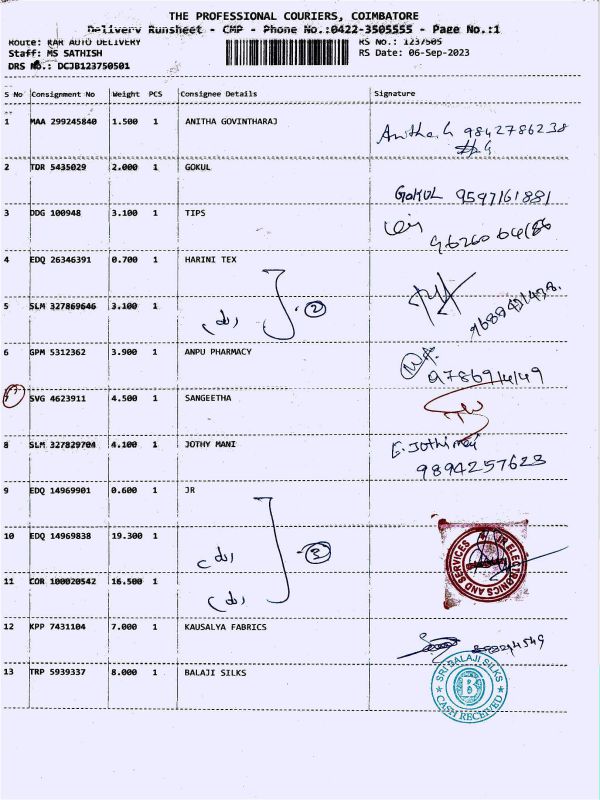 THE PROFESSIONAL COURIERS, COIMBATORE
Delivery Runsheet - CMP - Phone No.:0422-3505555 - Page No.:1
Route: KAR AUTO DELIVERY RS No.: 1237505
Staff: MS SATHISH RS Date: 06-Sep-2023
DRS No.: DCJB123750501
S No Consignment No Weight PCS Consignee Details Signature
1 MAA 299245840 1.500 1 ANITHA GOVINTHARAJ
Anitha G 9842786238
2 TDR 5435029 2.000 1 GOKUL
GOKUL 9597161881
3 DDG 100948 3.100 1 TIPS
4 EDQ 26346391 0.700 1 HARINI TEX
5 SLM 327869646 3.100 1
2
6 GPM 5312362 3.900 1 ANPU PHARMACY
7 SVG 4623911 4.500 1 SANGEETHA
8 SLM 327829704 4.100 1 JOTHY MANI
E. Jothimani
9894257623
9 EDQ 14969901 0.600 1 JR
10 EDQ 14969838 19.300 1
3
JR ELECTRONICS AND SERVICES
11 COR 100020542 16.500 1
12 KPP 7431104 7.000 1 KAUSALYA FABRICS
13 TRP 5939337 8.000 1 BALAJI SILKS
SRI BALAJI SILKS
B
CASH RECEIVED